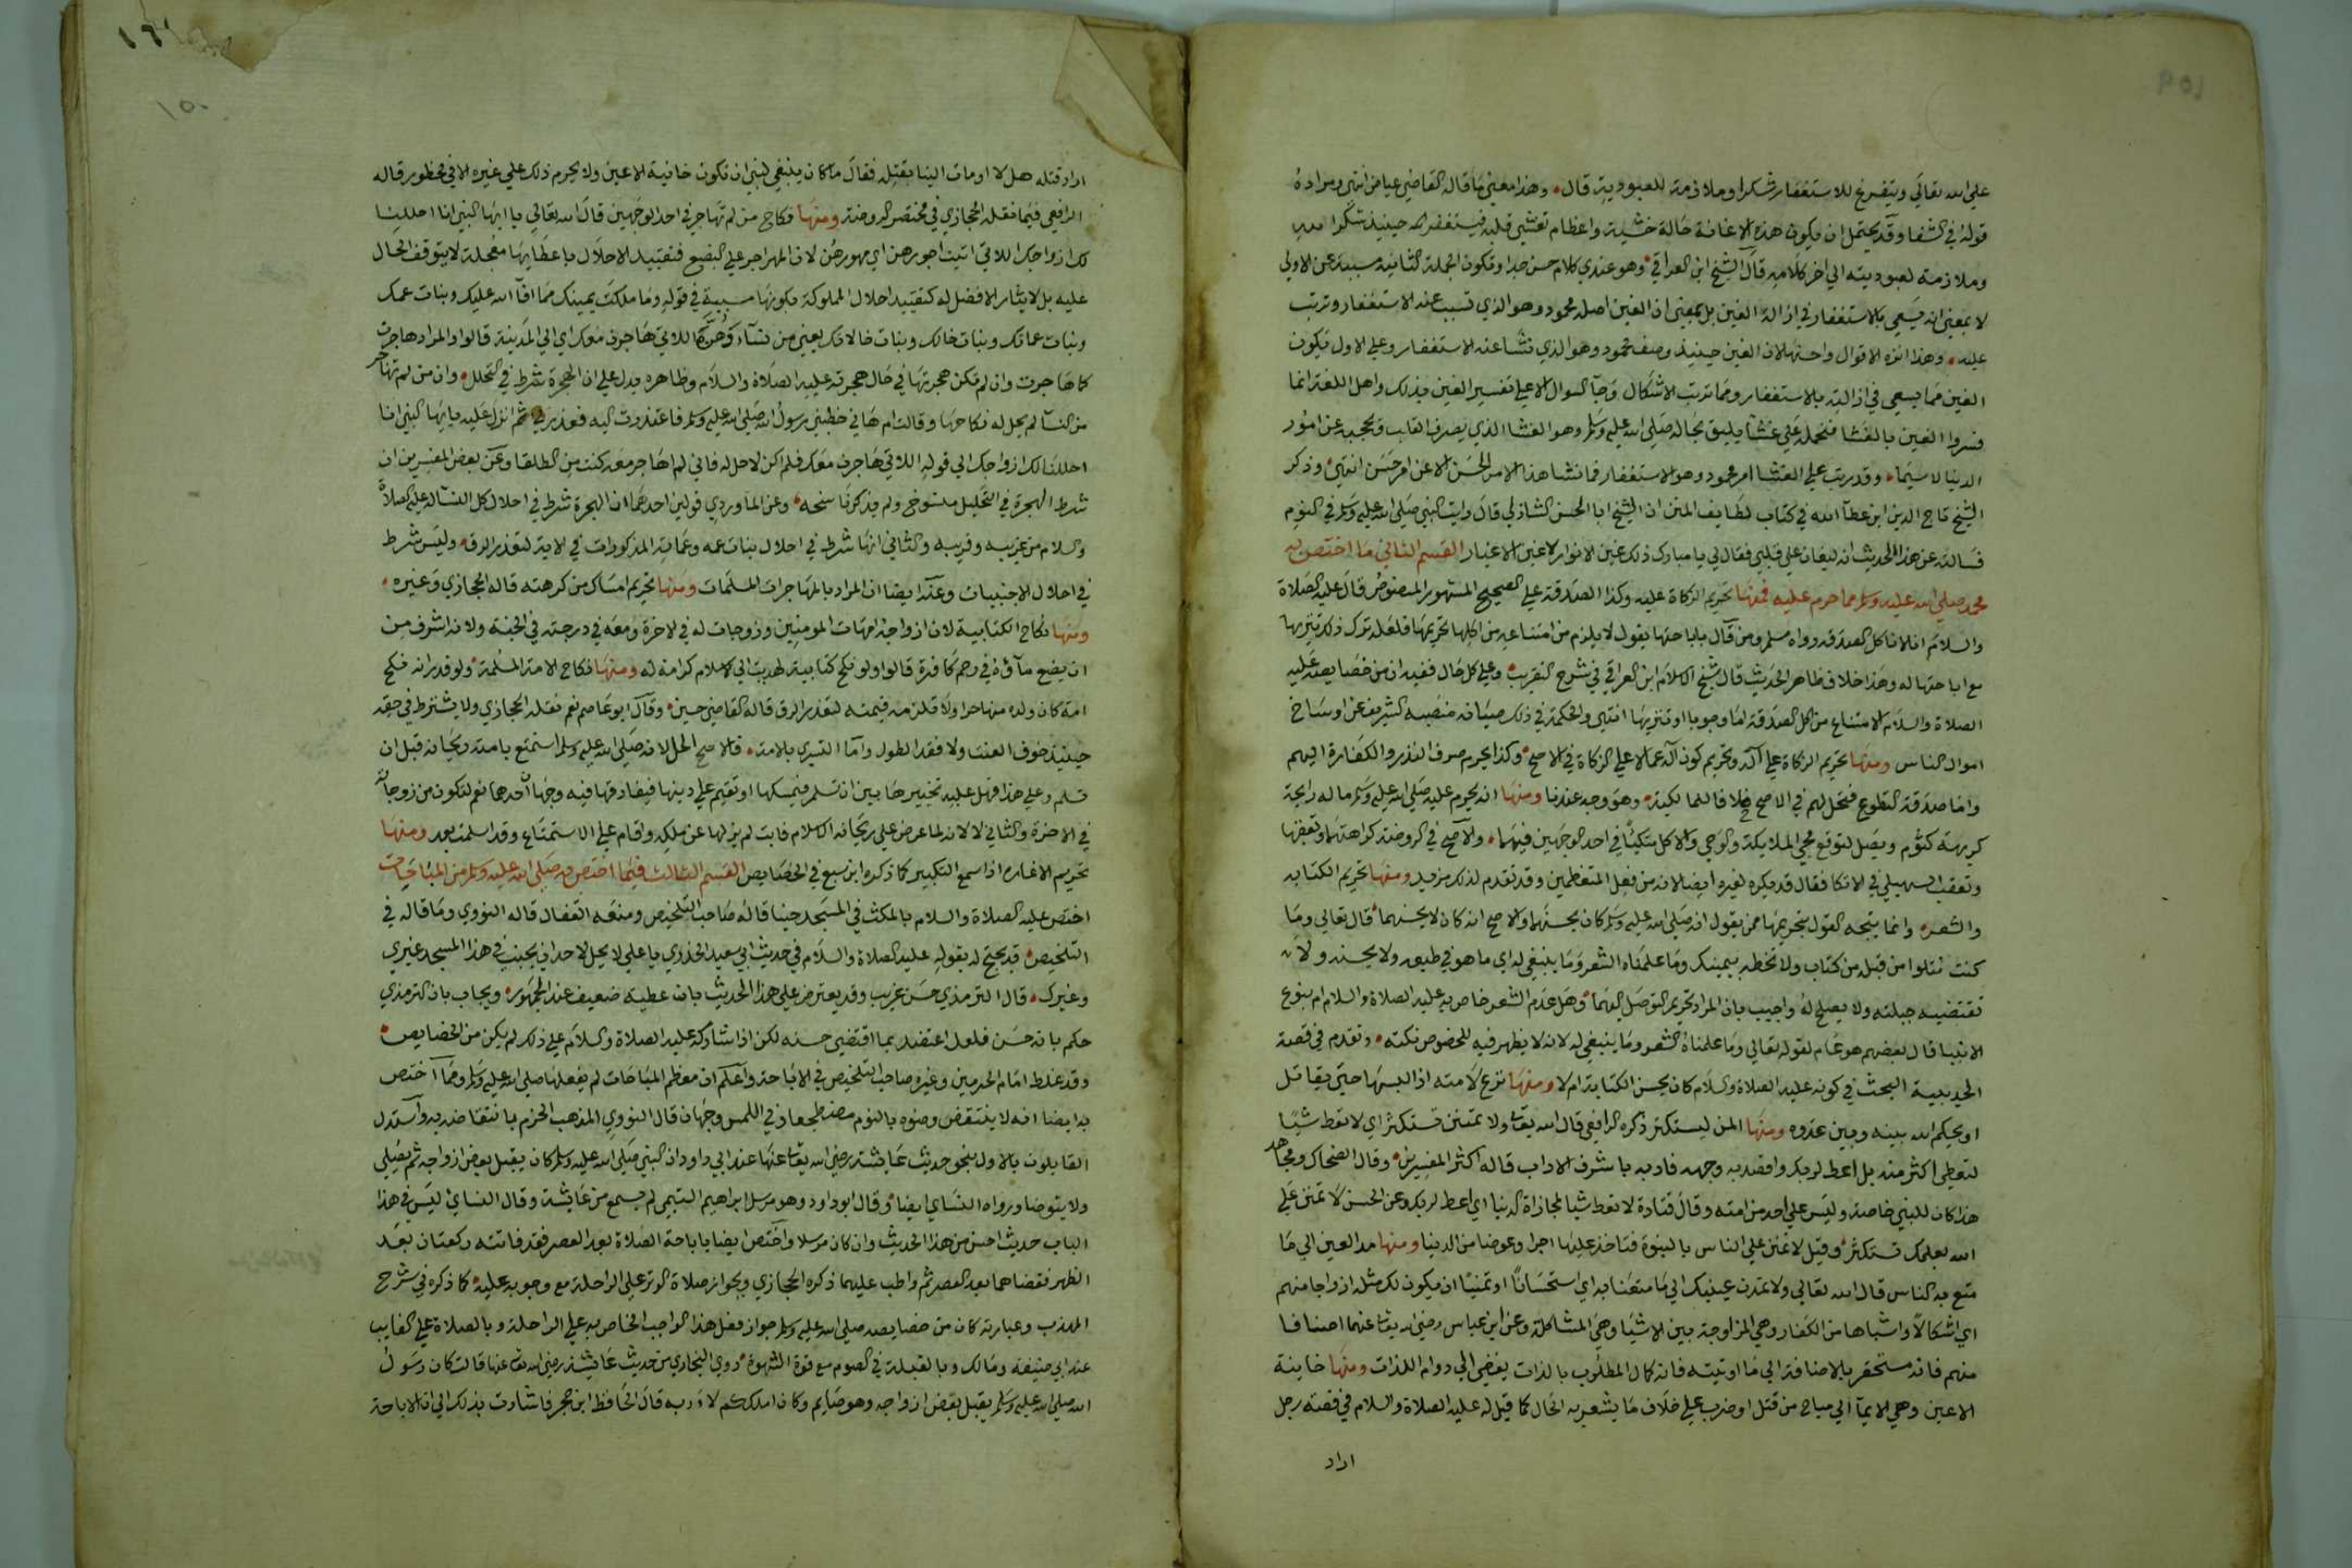 على الله تعالى ويتفرغ للاستغفار شكرا وملازمة للعبودية قال وهذا معنى ما قاله القاضي عياض انتهى ومراده
قوله في الشفا وقد يحتمل ان يكون هذه الاغانة حالة خشية واعظام تغشى قلبه فيستغفر الله حينيذ شكرا لله
وملازمة لعبوديته الى اخر كلامه قال الشيخ ابن العراقي وهو عندي كلام حسن جدا وتكون الجملة الثانية مسببة عن الاولى
لا بمعنى انه يسعى بالاستغفار في ازالة الغين بل بمعنى ان الغين اصله محمود وهو الذي تسبب عنه الاستغفار وترتب
عليه وهذا انزه الاقوال واحسنها لان الغين حينيذ وصف محمود وهو الذي نشا عنه الاستغفار وعلى الاول تكون
الغين مما يسعى في ازالته بالاستغفار وما ترتب الاشكال وجا السوال الا على تفسير الغين بذلك واهل اللغة انما
فسروا الغين بالغشا فنحمله على غشا يليق بحاله صلى الله عليه وسلم وهو الغشا الذي يصرف القلب ويحجبه عن امور
الدنيا لاسيما وقد رتب على الغشا امر محمود وهو الاستغفار فما نشا هذا الامر الحسن الا عن امر حسن انتهى وذكر
الشيخ تاج الدين ابن عطا الله في كتاب لطايف المنن ان الشيخ ابا الحسن الشاذلي قال رايت النبي صلى الله عليه وسلم في النوم
فسالته عن هذا الحديث انه ليغان على قلبي فقال لي يا مبارك ذلك غين الانوار لا غين الاغيار القسم الثاني ما اختص به
محمد صلى الله عليه وسلم مما حرم عليه فمنها تحريم الزكاة عليه وكذا الصدقة على الصحيح المشهور المنصوص قال عليه الصلاة
والسلام انا لا ناكل الصدقة رواه مسلم ومن قال باباحتها يقول لا يلزم من امتناعه من اكلها تحريمها فلعله ترك ذلك تنزيها
مع اباحتها له وهذا خلاف ظاهر الحديث قال شيخ الاسلام ابن العراقي في شرح التقريب وعلى كل حال ففيه ان من خصايصه عليه
الصلاة والسلام الامتناع من اكل الصدقة اما وجوبا او تنزيها انتهى والحكمة في ذلك صيانة منصبه الشريف عن اوساخ
اموال الناس ومنها تحريم الزكاة على آله وتحريم كون آله عمالا على الزكاة في الاصح وكذا يحرم صرف النذر والكفارة اليهم
واما صدقة التطوع فتحل لهم في الاصح خلافا للمالكية وهو وجه عندنا ومنها انه يحرم عليه صلى الله عليه وسلم ما له رايحة
كريهة كثوم وبصل لتوقع مجي الملايكة والوحي والاكل متكئا في احد الوجهين فيهما والاصح في الروضة كراهتهما وتعقبها
وتعقب السهيلي في الاتكا فقال قد يكره لغيره ايضا لانه من فعل المتعظمين وقد تقدم لذلك مزيد ومنها تحريم الكتابة
والشعر وانما يتجه القول بتحريمها ممن يقول انه صلى الله عليه وسلم كان يحسنهما والاصح انه كان لا يحسنهما قال تعالى وما
كنت تتلوا من قبله من كتاب ولا تخطه بيمينك وما علمناه الشعر وما ينبغي له اي ما هو في طبعه ولا يحسنه ولان
تقتضيه جبلته ولا يصلح له واجيب بان المراد تحريم التوصل اليهما وهل عدم الشعر خاص به عليه الصلاة والسلام ام بنوع
الانبيا قال بعضهم هو عام لقوله تعالى وما علمناه الشعر وما ينبغي له لانه لا يظهر فيه للخصوص نكتة وتقدم في قصة
الحديبية البحث في كونه عليه الصلاة والسلام كان يحسن الكتابة ام لا ومنها نزع لامته اذا لبسها حتى يقاتل
او يحكم الله بينه وبين عدوه ومنها المن ليستكثر ذكره الرافعي قال الله تعالى ولا تمنن تستكثر اي لا تعط شيئا
لتعطى اكثر منه بل اعط لربك واقصد به وجهه فادبه باشرف الاداب قاله اكثر المفسرين وقال الضحاك ومجاهد
هذا كان للنبي خاصة وليس على احد من امته وقال قتادة لا تعط شيا لمجازاة الدنيا اي اعط لربك وعن الحسن لا تمنن على
الله بعلمك تستكثر وقيل لا تمنن على الناس بالنبوة فتاخذ عليها اجرا وعوضا من الدنيا ومنها مد العين الى ما
متع به الناس قال الله تعالى ولا تمدن عينيك الى ما متعنا به اي استحسانا او تمنيا ان يكون لك مثله ازواجا منهم
اي اشكالا واشباها من الكفار وهي المزاوجة بين الاشيا وهي المشاكلة وعن ابن عباس رضي الله تعالى عنهما اصنافا
منهم فانه مستحقر بالاضافة الى ما اوتيته فانه كمال المطلوب بالذات يفضي الى دوام اللذات ومنها خاينة
الاعين وهي الايما الى مباح من قتل او ضرب على خلاف ما يشعر به الحال كما قيل له عليه الصلاة والسلام في قصة رجل
اراد
١٥٠
اراد قتله هل لا اومات الينا بقتله فقال ما كان ينبغي لنبي ان تكون خاينة الاعين ولا يحرم ذلك على غيره الا في محظور قاله
الرافعي فيما نقله الحجازي في مختصر الروضة ومنها نكاح من لم تهاجر في احد الوجهين قال الله تعالى يا ايها النبي انا احللنا
لك ازواجك اللاتي اتيت اجورهن اي مهورهن لان المهر اجر على البضع فتقييد الاحلال باعطايها معجلة لا يتوقف الحال
عليه بل لايثار الافضل له كتقييد احلال المملوكة بكونها مسبية في قوله وما ملكت يمينك مما افا الله عليك وبنات عمك
وبنات عماتك وبنات خالك وبنات خالاتك يعني من نسآء اللاتي هاجرن معك اي الى المدينة قالوا والمراد هاجرت
كما هاجرت وان لم تكن هجرتها في حال هجرته عليه الصلاة والسلام وظاهره يدل على ان الهجرة شرط في التحلل وان من لم تهاجر
من النسا لم يحل له نكاحها وقالت ام هاني خطبني رسول الله صلى الله عليه وسلم فاعتذرت اليه فعذرني ثم انزل عليه يا ايها النبي انا
احللنا لك ازواجك الى قوله اللاتي هاجرن معك فلم اكن لاحل له فاني لم اهاجر معه كنت من الطلقا وعن بعض المفسرين ان
شرط الهجرة في التحليل منسوخ ولم يذكر ناسخه وعن الماوردي قولين احدهما ان الهجرة شرط في احلال كل النسا له عليه الصلاة
والسلام من غريبه وقريبه والثاني انها شرط في احلال بنات عمه وعماته المذكورات في الاية لتعذر الرق وليس شرط
في احلال الاجنبيات وعنه ايضا ان المراد بالمهاجرات المسلمات ومنها تحريم امساك من كرهته قاله الحجازي وغيره
ومنها نكاح الكتابية لان ازواجه امهات المومنين وزوجات له في الاخرة ومعه في درجته في الجنة ولانه اشرف من
ان يضع مآءه في رحم كافرة قالوا ولو نكح كتابية لهديت الى الاسلام كرامة له ومنها نكاح الامة المسلمة ولو قدر انه نكح
امة كان ولده منها حرا ولا تلزمه قيمته لتعذر الرق قاله القاضي حسين وقال ابو عاصم نعم نقله الحجازي ولا يشترط في حقه
حينيذ خوف العنت ولا فقد الطول واما التسري بالامة فالاصح الحل لانه صلى الله عليه وسلم استمتع بامته ريحانة قبل ان
تسلم وعلى هذا فهل عليه تخييرها بين ان تسلم فيمسكها او تقيم على دينها فيفارقها فيه وجهان احدهما نعم لتكون من زوجاته
في الاخرة والثاني لا لانه لما عرض على ريحانة الاسلام فابت لم يزلها عن ملكه واقام على الاستمتاع وقد اسلمت بعد ومنها
تحريم الاغارة اذا سمع التكبير كما ذكره ابن سبع في الخصايص القسم الثالث فيما اختص به صلى الله عليه وسلم من المباحات
اختص عليه الصلاة والسلام بالمكث في المسجد جنبا قاله صاحب التلخيص ومنعه القفال قاله النووي وما قاله في
التلخيص قد يحتج له بقوله عليه الصلاة والسلام في حديث ابي سعيد الخدري يا علي لا يحل لاحد ان يجنب في هذا المسجد غيري
وغيرك قال الترمذي حسن غريب وقد يعترض على هذا الحديث بان عطية ضعيف عند الجمهور ويجاب بان الترمذي
حكم بانه حسن فلعل اعتضد بما اقتضى حسنه لكن اذا شاركه عليه الصلاة والسلام علي ذلك لم يكن من الخصايص
وقد غلط امام الحرمين وغيره صاحب التلخيص في الاباحة واعلم ان معظم المباحات لم يفعلها صلى الله عليه وسلم ومما اختص
به ايضا انه لا ينتقض وضوه بالنوم مضطجعا وفي اللمس وجهان قال النووي المذهب الجزم بانتقاضه به واستدل
القايلون بالاول بنحو حديث عايشة رضي الله تعالى عنها عند ابي داود ان النبي صلى الله عليه وسلم كان يقبل بعض ازواجه ثم يصلي
ولا يتوضا ورواه النساي ايضا وقال ابو داود وهو مرسل ابراهيم التيمي لم يسمع من عايشة وقال النساي ليس في هذا
الباب حديث احسن من هذا الحديث وان كان مرسلا واختص ايضا باباحة الصلاة بعد العصر فقد فاتته ركعتان بعد
الظهر فقضاهما بعد العصر ثم واظب عليهما ذكره الحجازي وبجواز صلاة الوتر على الراحلة مع وجوبه عليه كما ذكره في شرح
المهذب وعبارته كان من خصايصه صلى الله عليه وسلم جواز فعل هذا الواجب الخاص به على الراحلة وبالصلاة على الغايب
عند ابي حنيفة ومالك وبالقبلة في الصوم مع قوة الشهوة روى البخاري من حديث عايشة رضي الله تعالى عنها قالت كان رسول
الله صلى الله عليه وسلم يقبل بعض ازواجه وهو صايم وكان املككم لاربه قال الحافظ ابن حجر فاشارت بذلك الى ان الاباحة